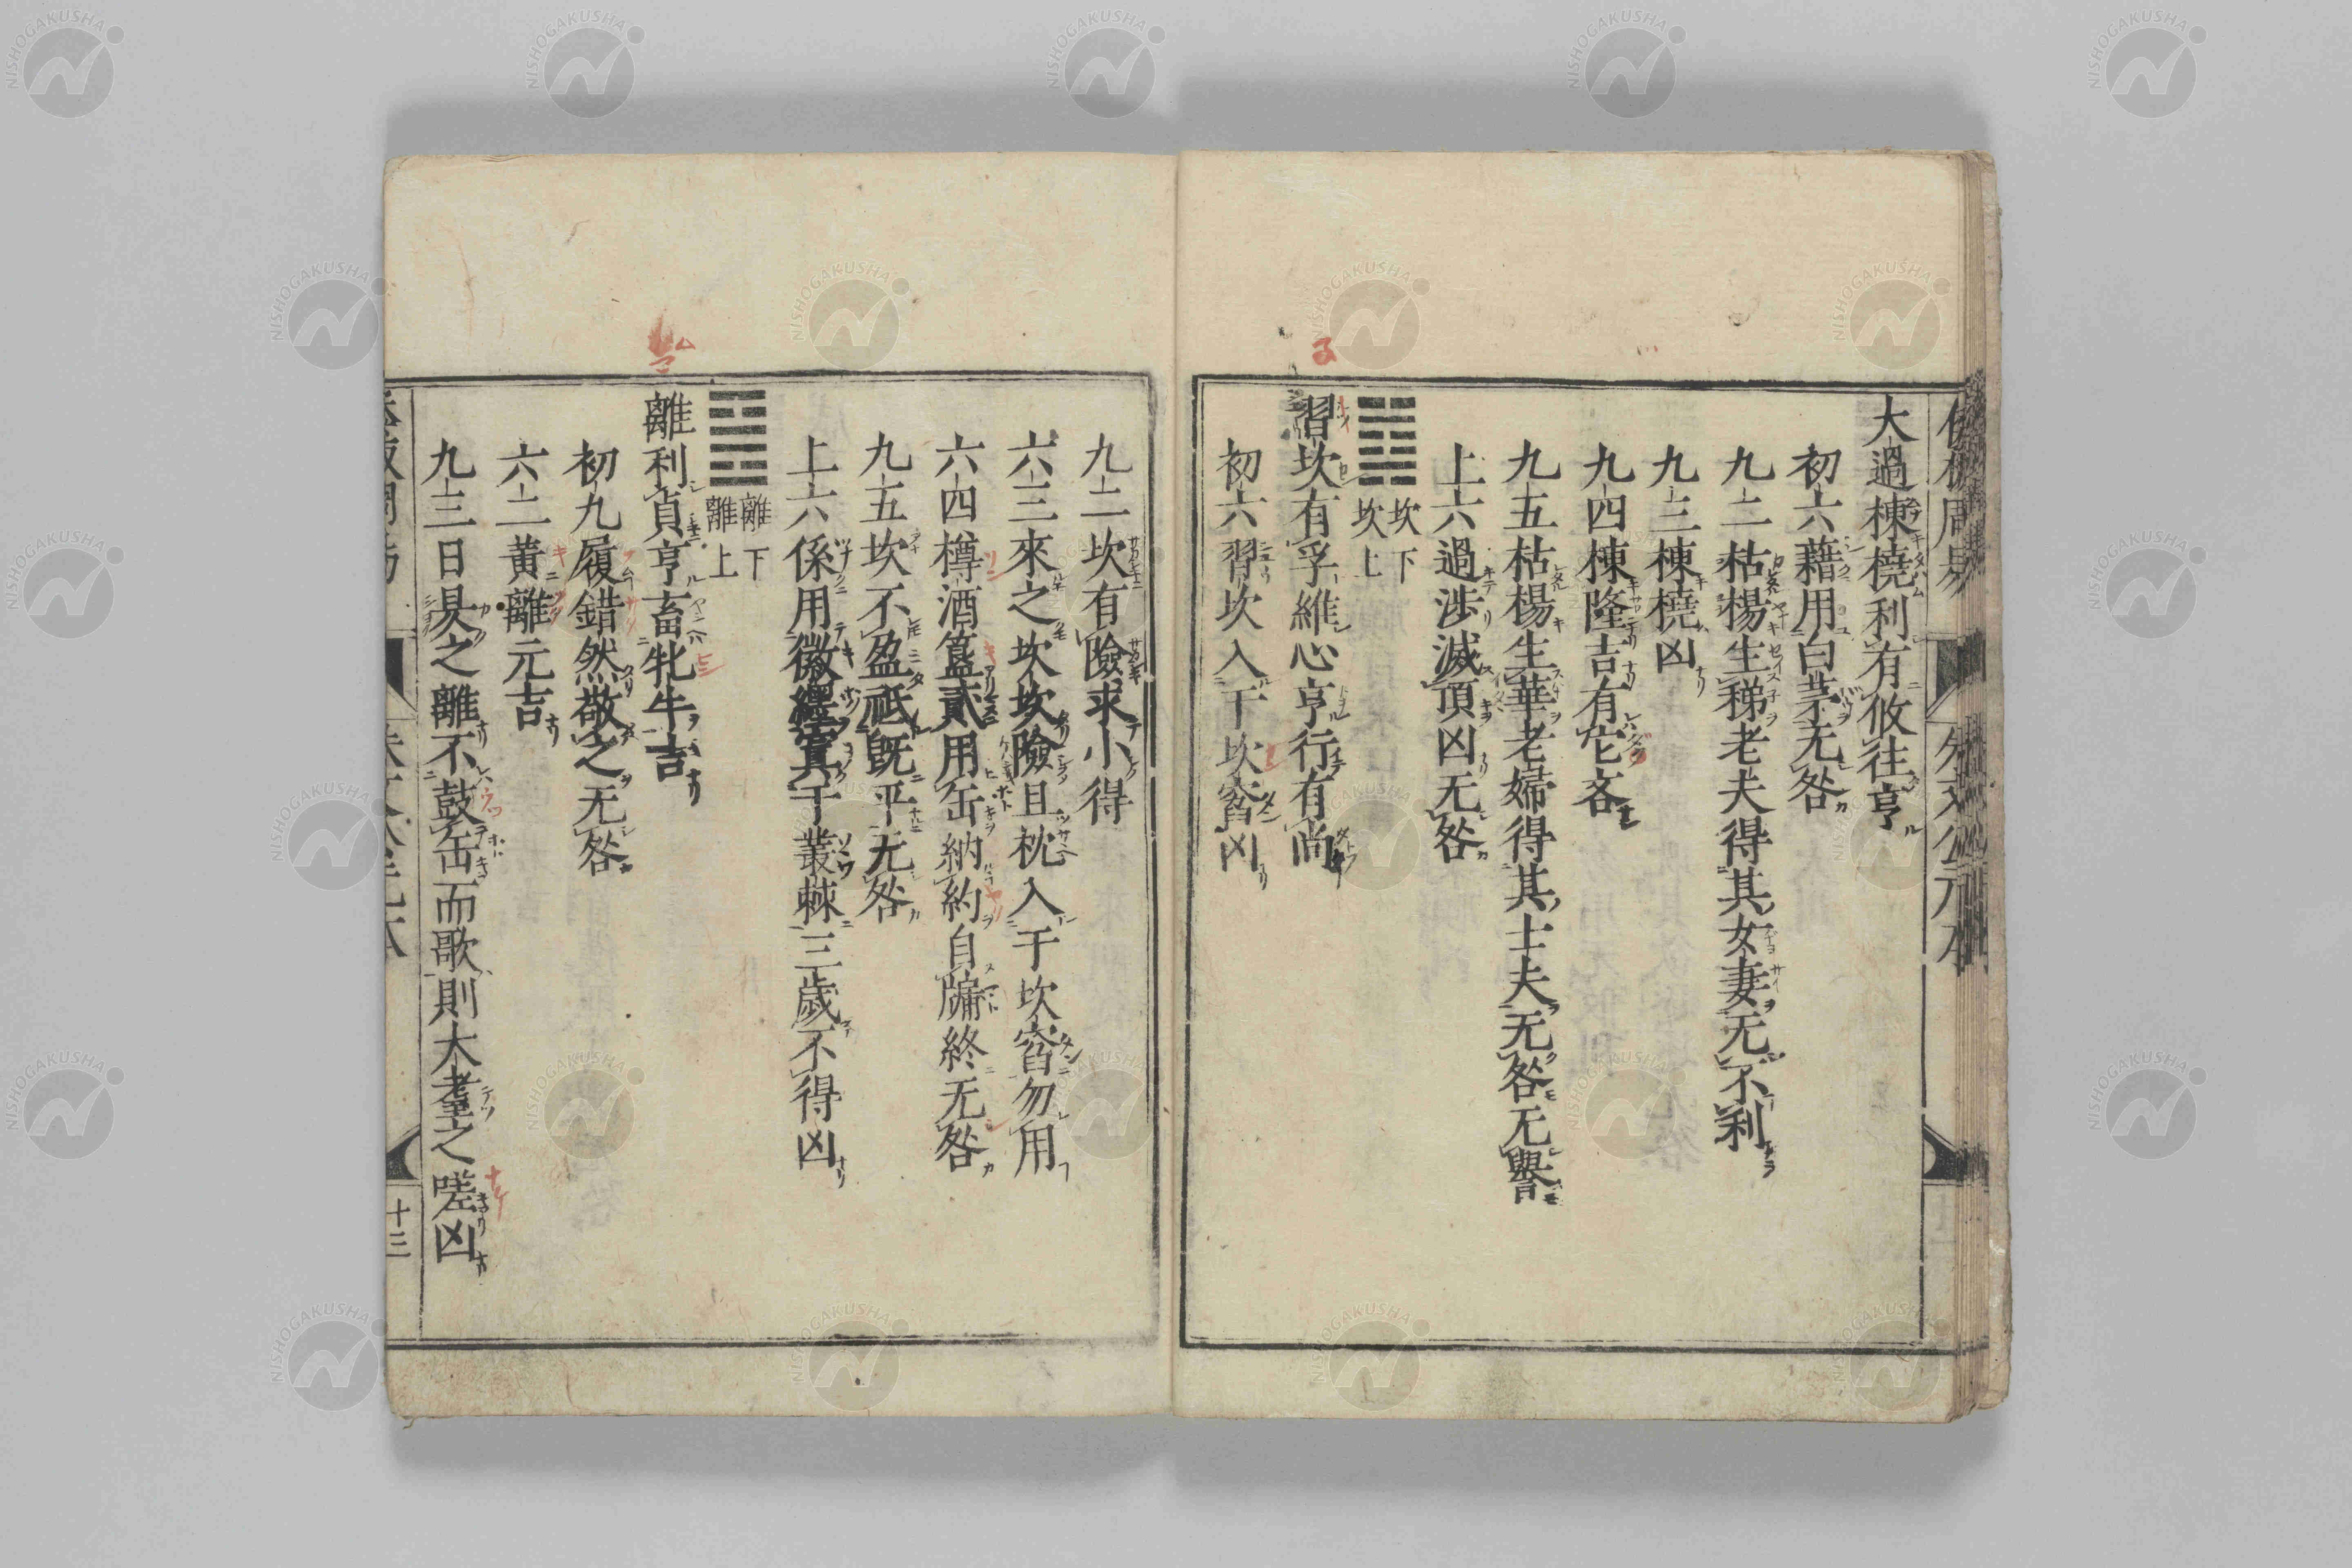 大過棟橈利有攸往亨
初六藉用白茅无咎
九二枯楊生稊老夫得其女妻无不利
九三棟橈凶
九四棟隆吉有它吝
九五枯楊生華老婦得其士夫无咎无譽
上六過涉滅頂凶无咎
坎下
坎上
習坎有孚維心亨行有尚
初六習坎入于坎窞凶
九二坎有險求小得
六三來之坎坎險且枕入于坎窞勿用
六四樽酒簋貳用缶納約自牖終无咎
九五坎不盈祗既平无咎
上六係用徽纆寘于叢棘三歲不得凶
離下
離上
離利貞亨畜牝牛吉
初九履錯然敬之无咎
六二黃離元吉
九三日昃之離不鼓缶而歌則大耋之嗟凶
十三
NISHOGAKUSHA